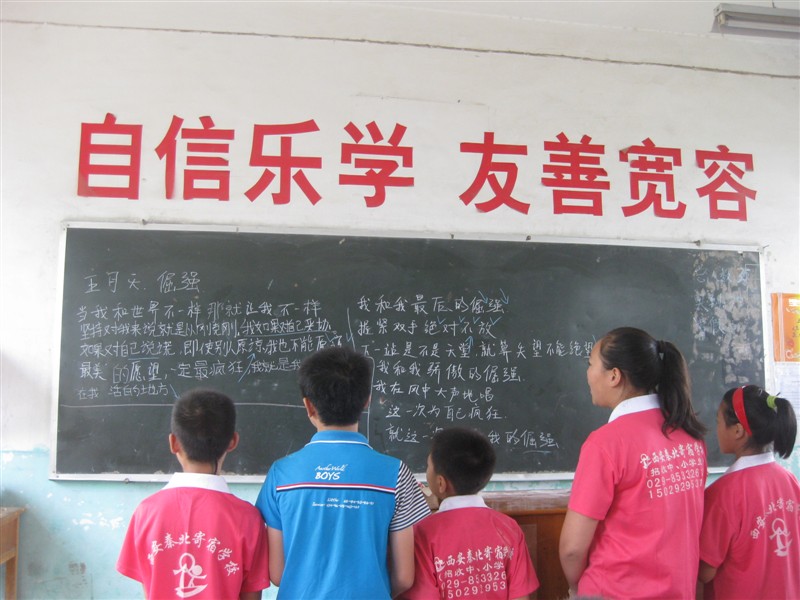 自信乐学 友善宽容
五月天 倔强
当我和世界不一样 那就让我不一样
坚持对我来说就是以刚克刚，我如果对自己妥协
如果对自己说谎 即使别人原谅，我也不能原
最美的愿望 一定最疯狂，我就是我
在我 活的地方
我和我最后的倔强
握紧双手绝对不放
下一站是不是天堂，就算失望不能绝望
我和我骄傲的倔强
我在风中大声地唱
这一次为自己疯狂
就这一次 我的倔强
西安秦北寄宿学校
BOYS
西安秦北寄宿学
招收中、小学
029-853326
1502919531
西安秦北寄宿学
招收中、小学
029-853326
150291953
西安秦北寄宿